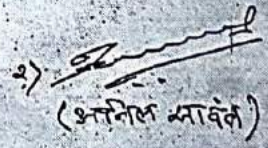 २)
(अनिल सावंत)